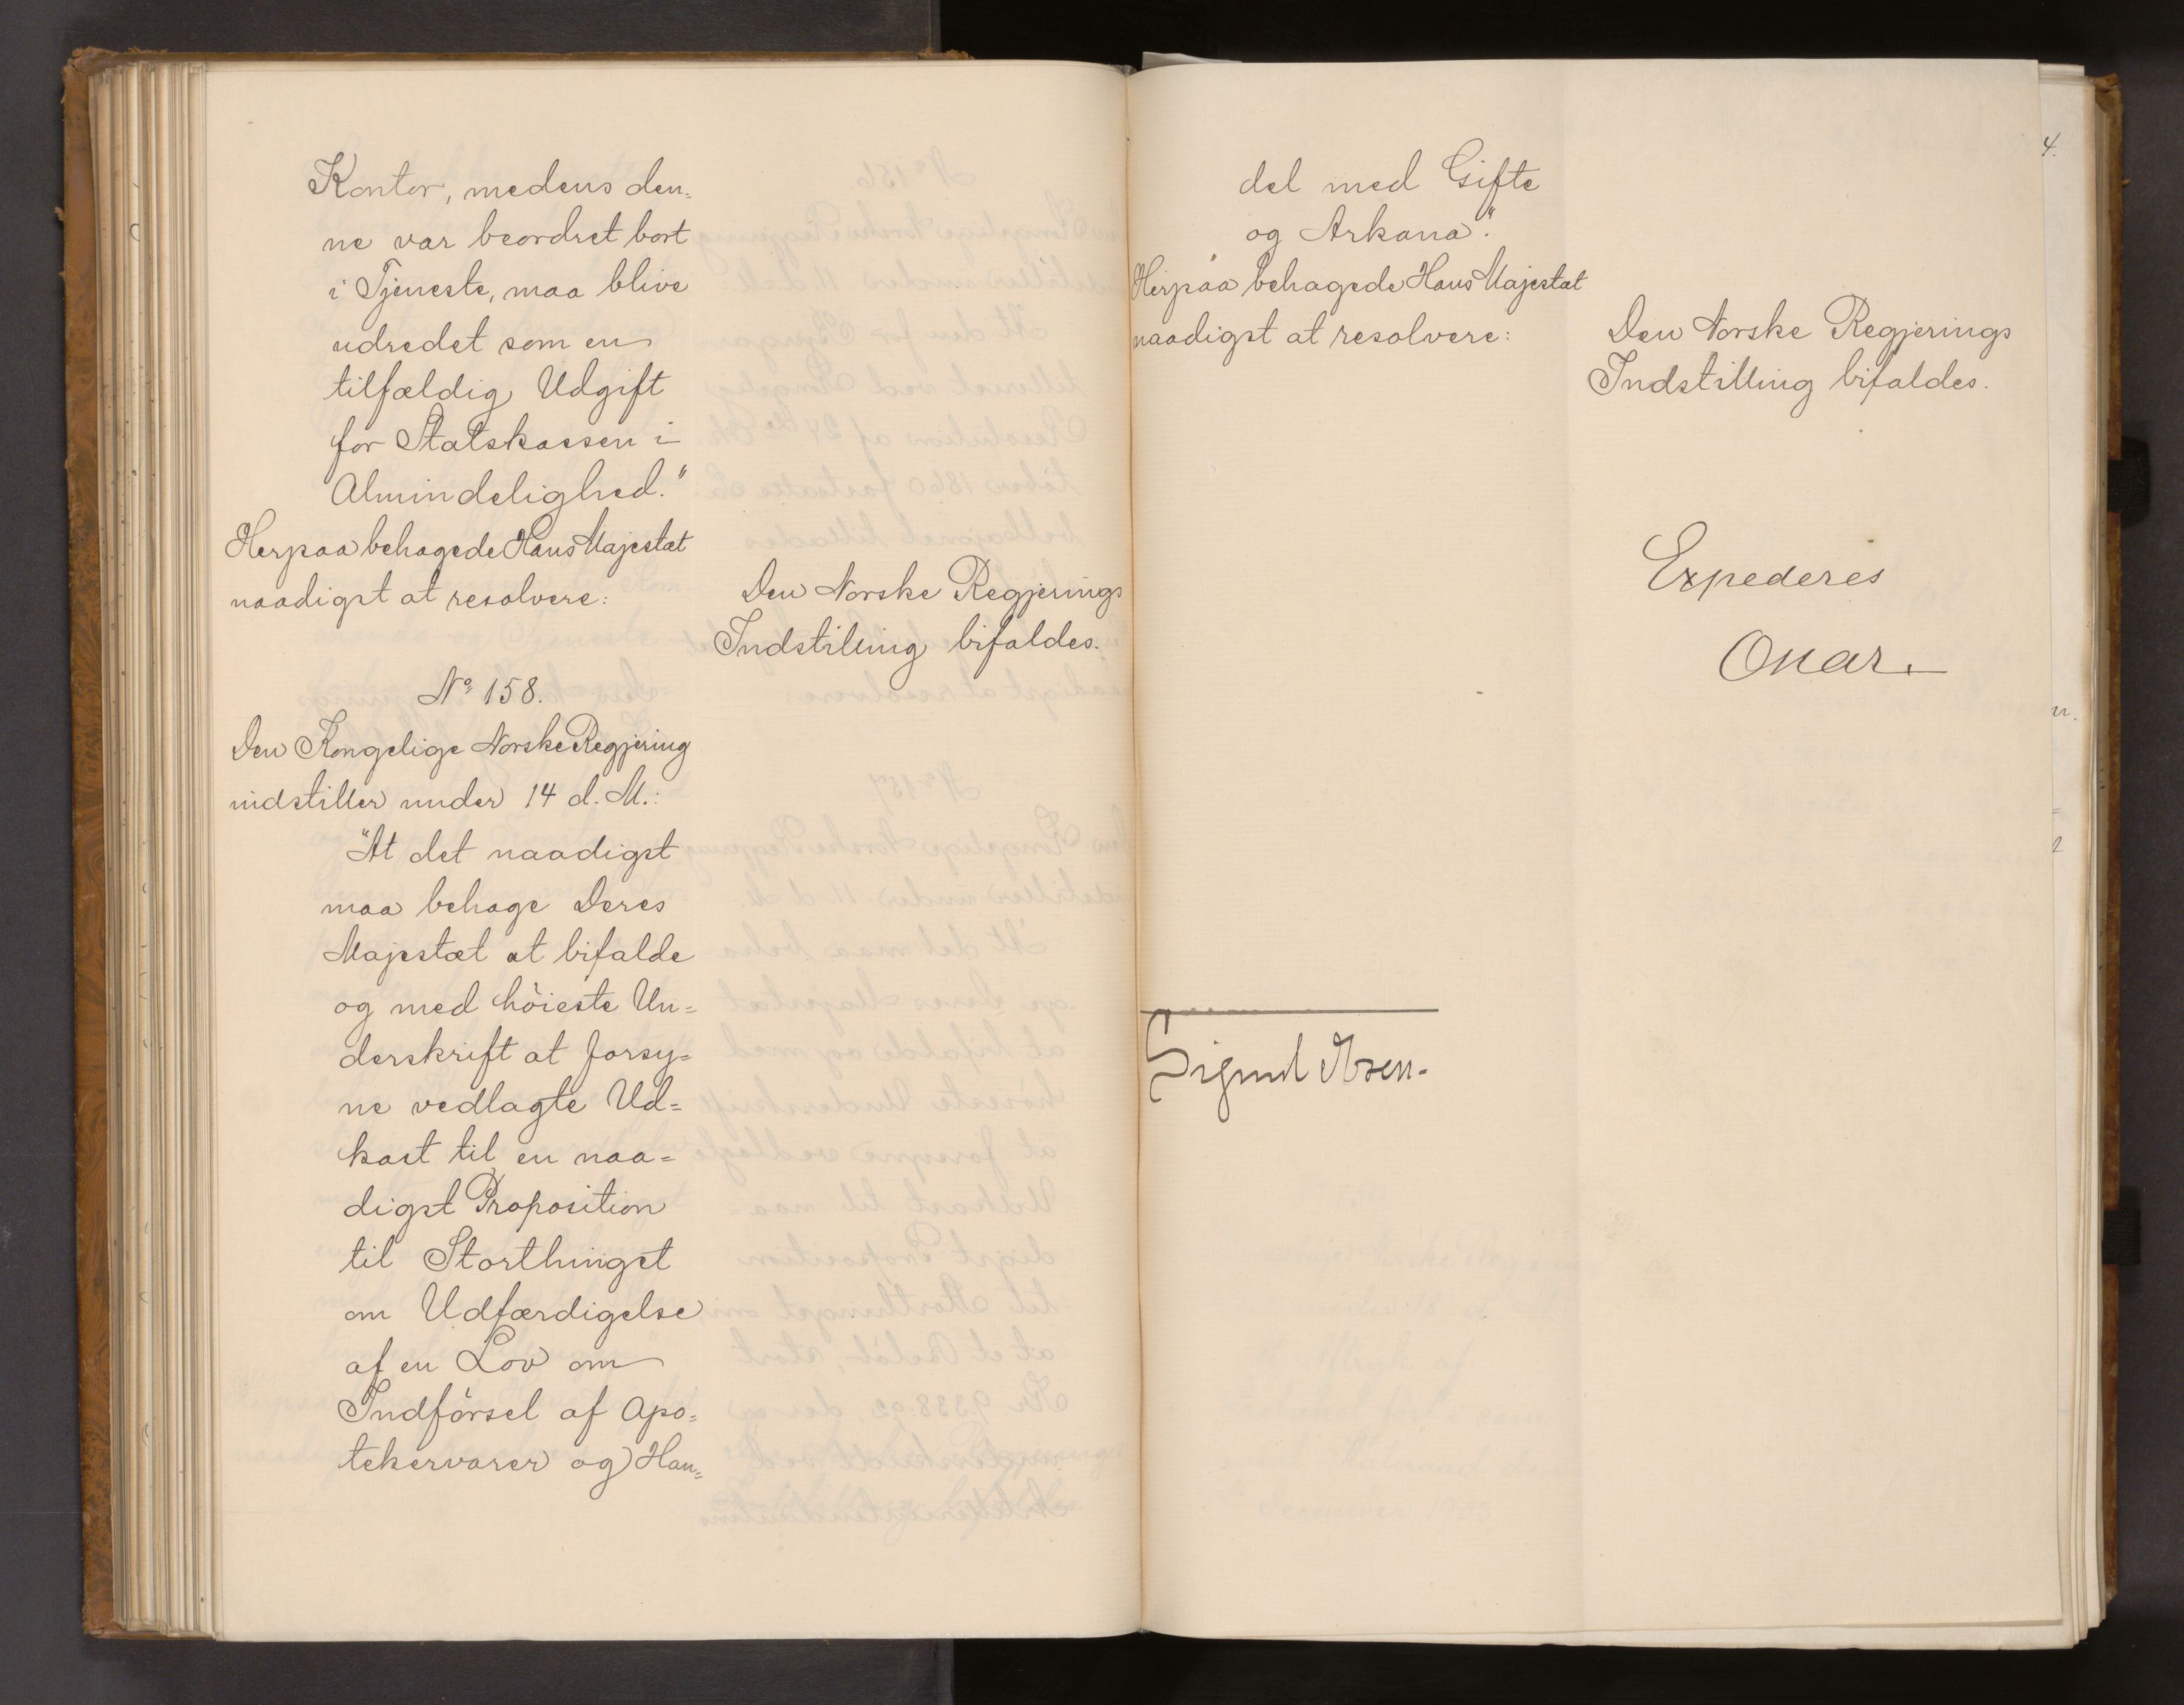 Kontor, medens den=
ne var beordret bort
i Tjeneste, maa blive
udredet som en
tilfældig Udgift
for Statskassen i
Almindelighed."
Herpaa behagede Hans Majestæt
naadigst at resolvere:
Den Norske Regjerings
Indstilling bifaldes.
No 158.
Den Kongelige Norske Regjering
indstiller under 14 d. M.:
"At det naadigst
maa behage Deres
Majestæt at bifalde
og med höieste Un=
derskrift at forsy=
ne vedlagte Ud=
kast til en naa=
digst Proposition
til Storthinget
om Udfærdigelse
af en Lov om
Indförsel af Apo=
tekervarer og Han=
del med Gifte
og Arkana".
Herpaa behagede Hans Majestæt
naadigst at resolvere:
Den Norske Regjerings
Indstilling bifaldes.
Expederes
Oscar.
Sigurd Ibsen.
4.